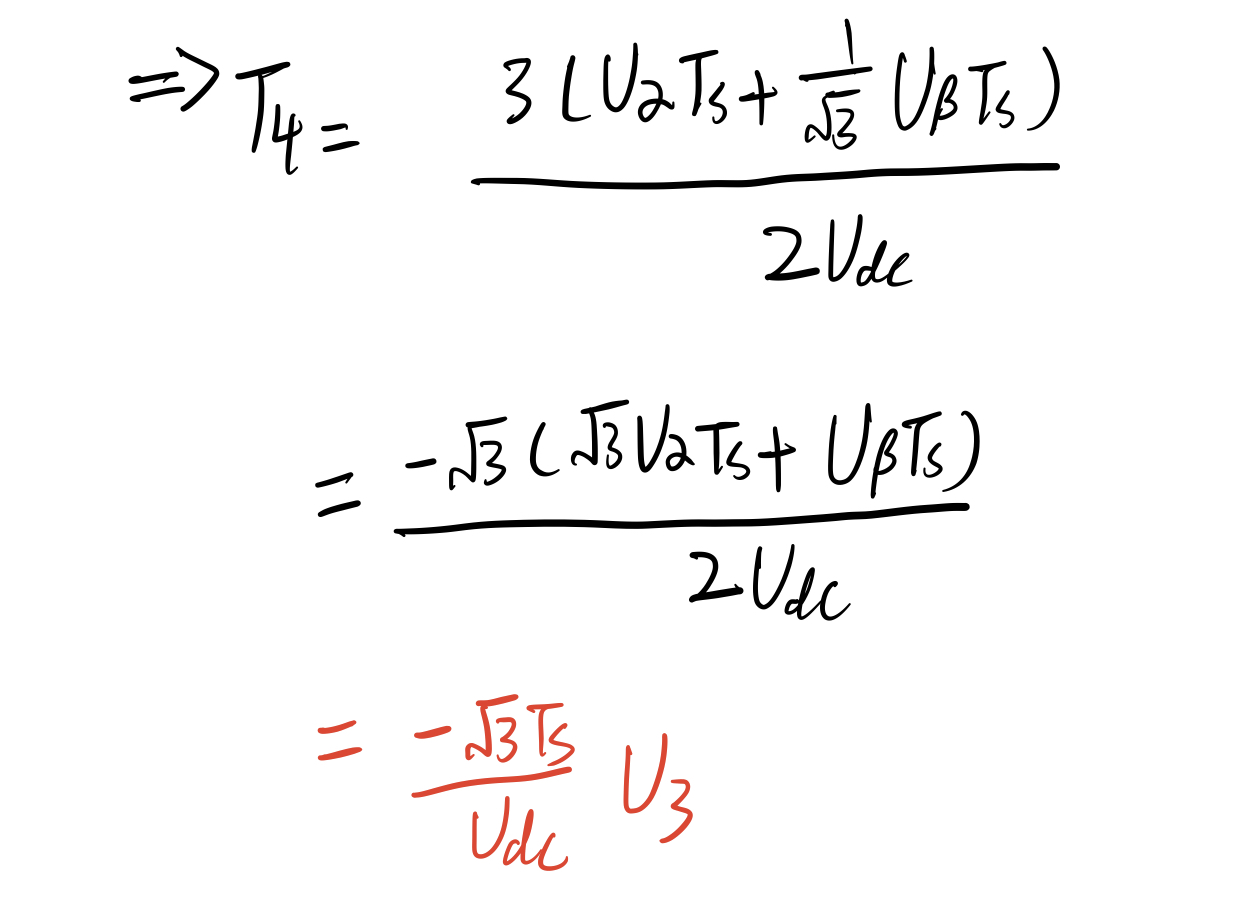 ⇒ T₄ = 3(U₂Tₛ + 1/√3 UᵦTₛ) / 2U_dc
= -√3(√3U₂Tₛ + UᵦTₛ) / 2U_dc
= -√3Tₛ / U_dc U₃